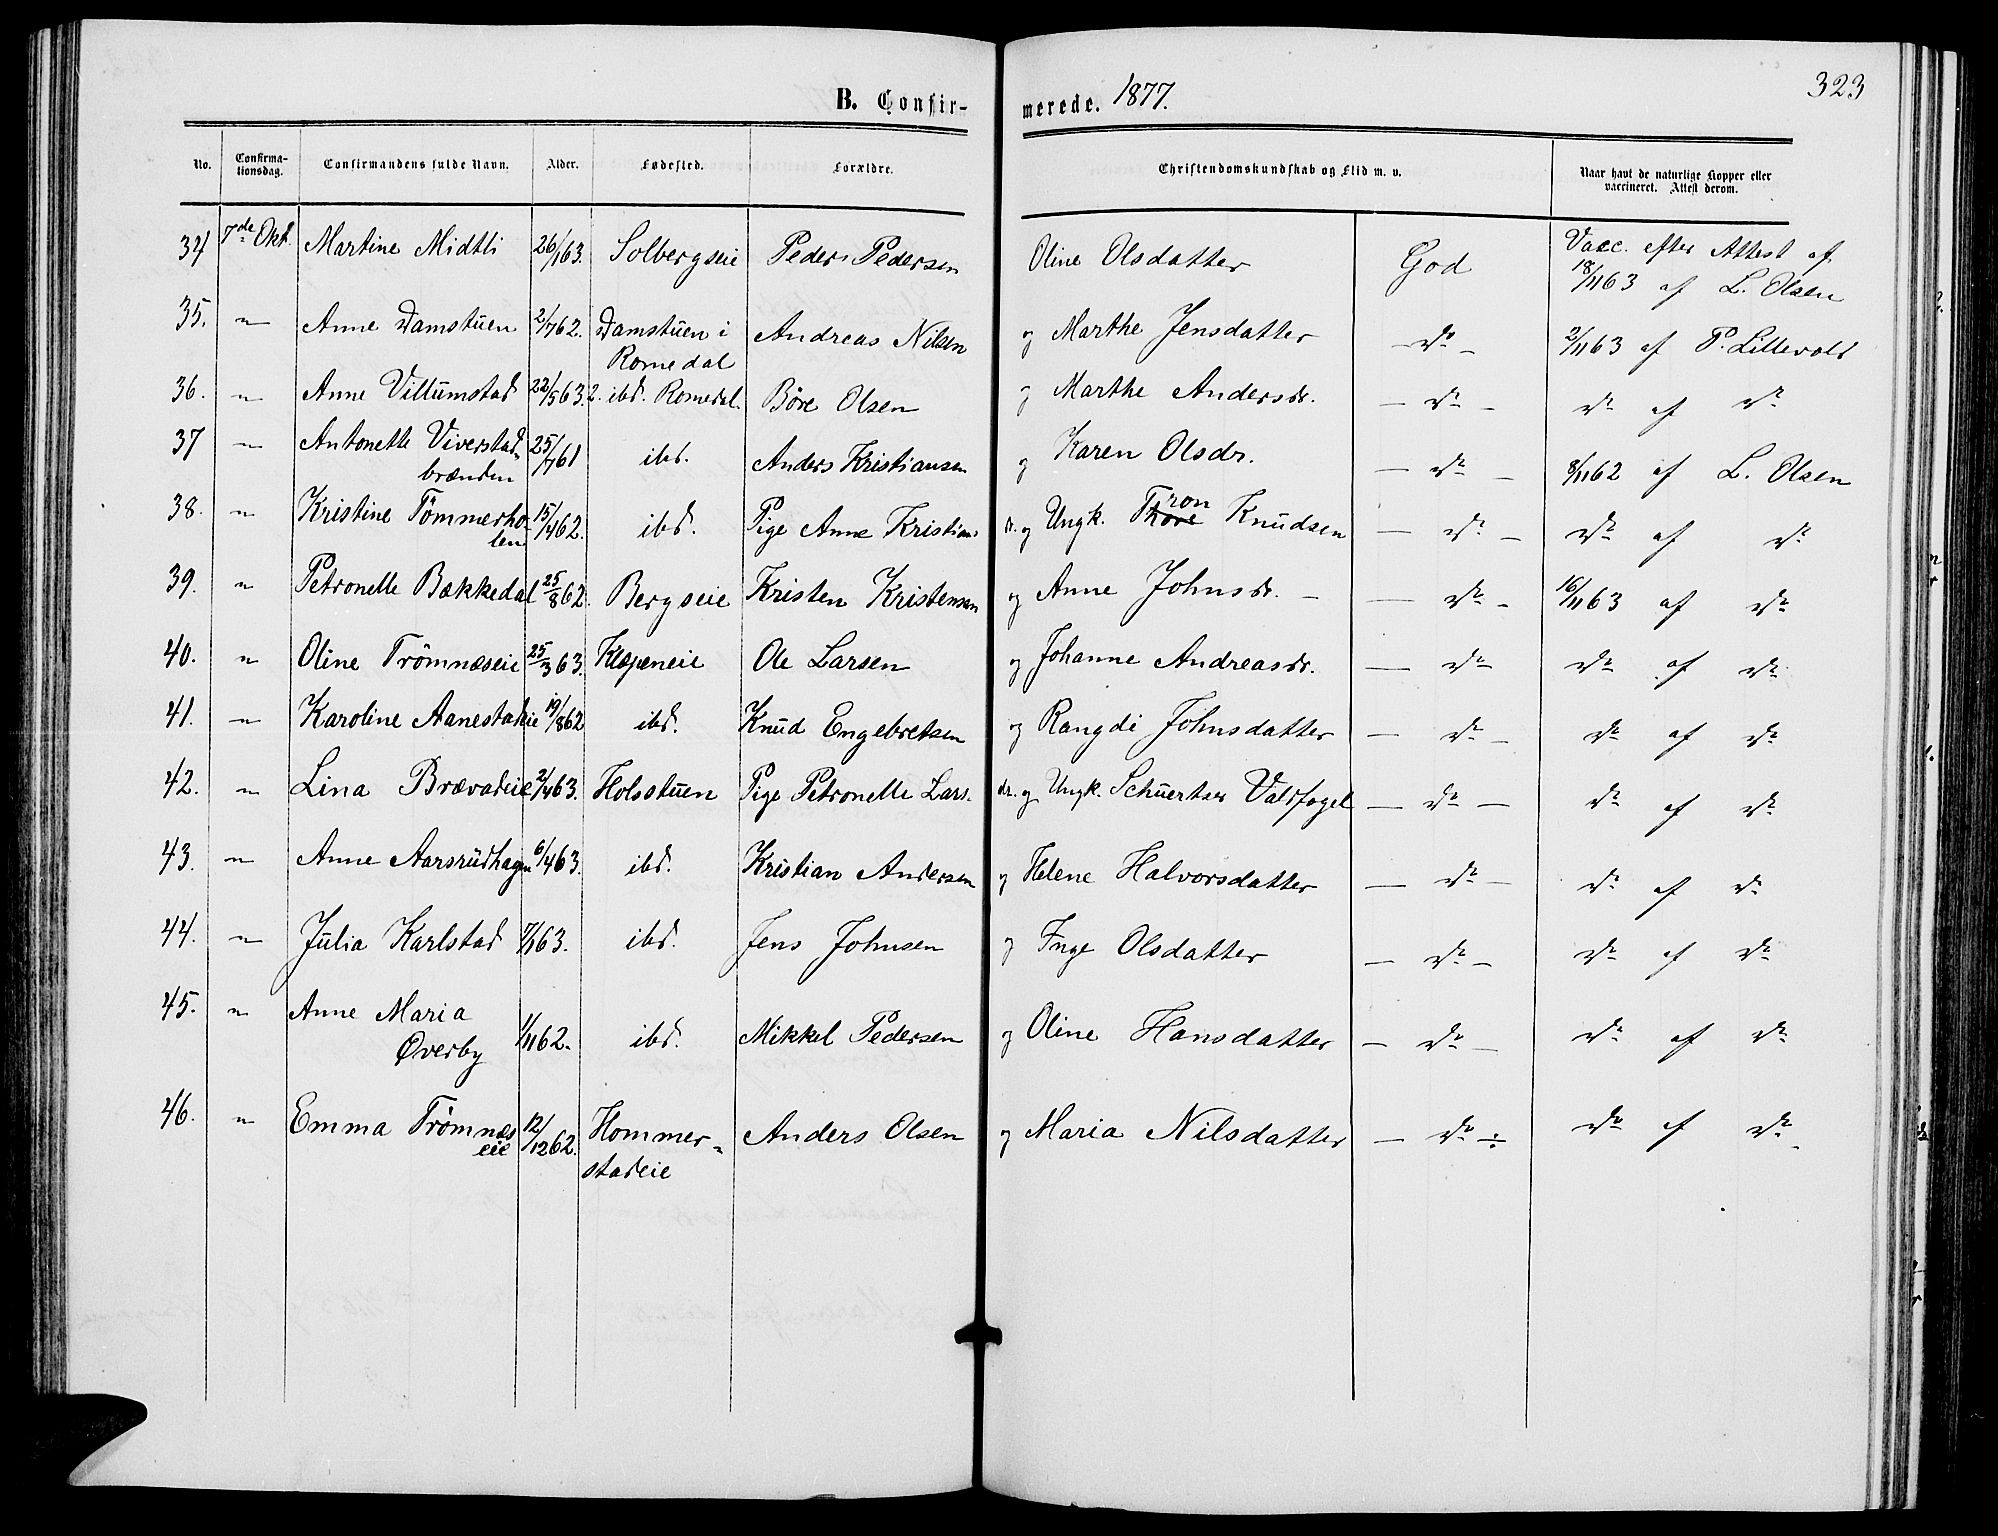 B. Confirmerede. 1877.
323
No. Confirmationsdag. Confirmandens fulde Navn. Alder. Fødested. Forældre. Christendomskundskab og Flid m. v. Naar havt de naturlige Kopper eller vaccineret. Attest derom.
34 7de Okt. Martine Midtli 26/1 63. Solbergseie Peder Pedersen Oline Olsdatter God Vacc. efter Attest af
18/11 63 af L. Olsen
35. " Anne Damstuen 2/7 62. Damstuen i Romedal Andreas Nilsen og Marthe Jensdatter – do – 2/11 63 af P. Lillevold
36. " Anne Villumstad 22/5 63. ibd. Romedal. Böre Olsen og Marthe Andersdr. – do – do af do
37 " Antonette Viverstad brænden 25/7 61 ibd. Anders Kristiansen og Karen Olsdr. – do – 8/11 62 af L. Olsen
38. " Kristine Tömmerholen 15/4 62. ibd. Pige Anne Kristiansdr. og Ungk. Tron Knudsen – do – do af do
39. " Petronelle Bækkedal 25/8 62. Bergseie Kristen Kristensen og Anne Johnsdr. – – do – 16/11 63 af do
40. " Oline Trömnæseie 25/3 63. Klæpeneie Ole Larsen og Johanne Andreasdr. – do do af do
41. " Karoline Aanestadeie 19/8 62 ibd. Knud Engebretsen og Rangdi Johnsdatter – do – do af do
42. " Lina Brævadeie 2/4 63. Holsstuen Pige Petronelle Larsdr. og Ungk. Schuertser Valdfogel – do – do af do
43. " Anne Aarsrudhagen 6/4 63. ibd. Kristian Andersen og Helene Halvorsdatter – do – do af do
44. " Julia Karlstad 7/1 63. ibd. Jens Johnsen og Inge Olsdatter – do – do af do
45. " Anne Maria Øverby 1/11 62. ibd. Mikkel Pedersen og Oline Hansdatter – do – do af do
46. " Emma Trømnæs eie 12/12 62. Hommerstadeie Anders Olsen og Maria Nilsdatter – do ÷ do af do